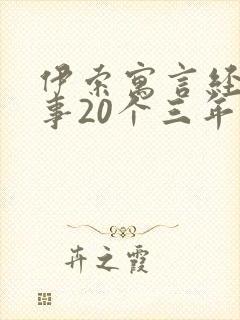 伊索寓言经
事20个三年
卉之霞